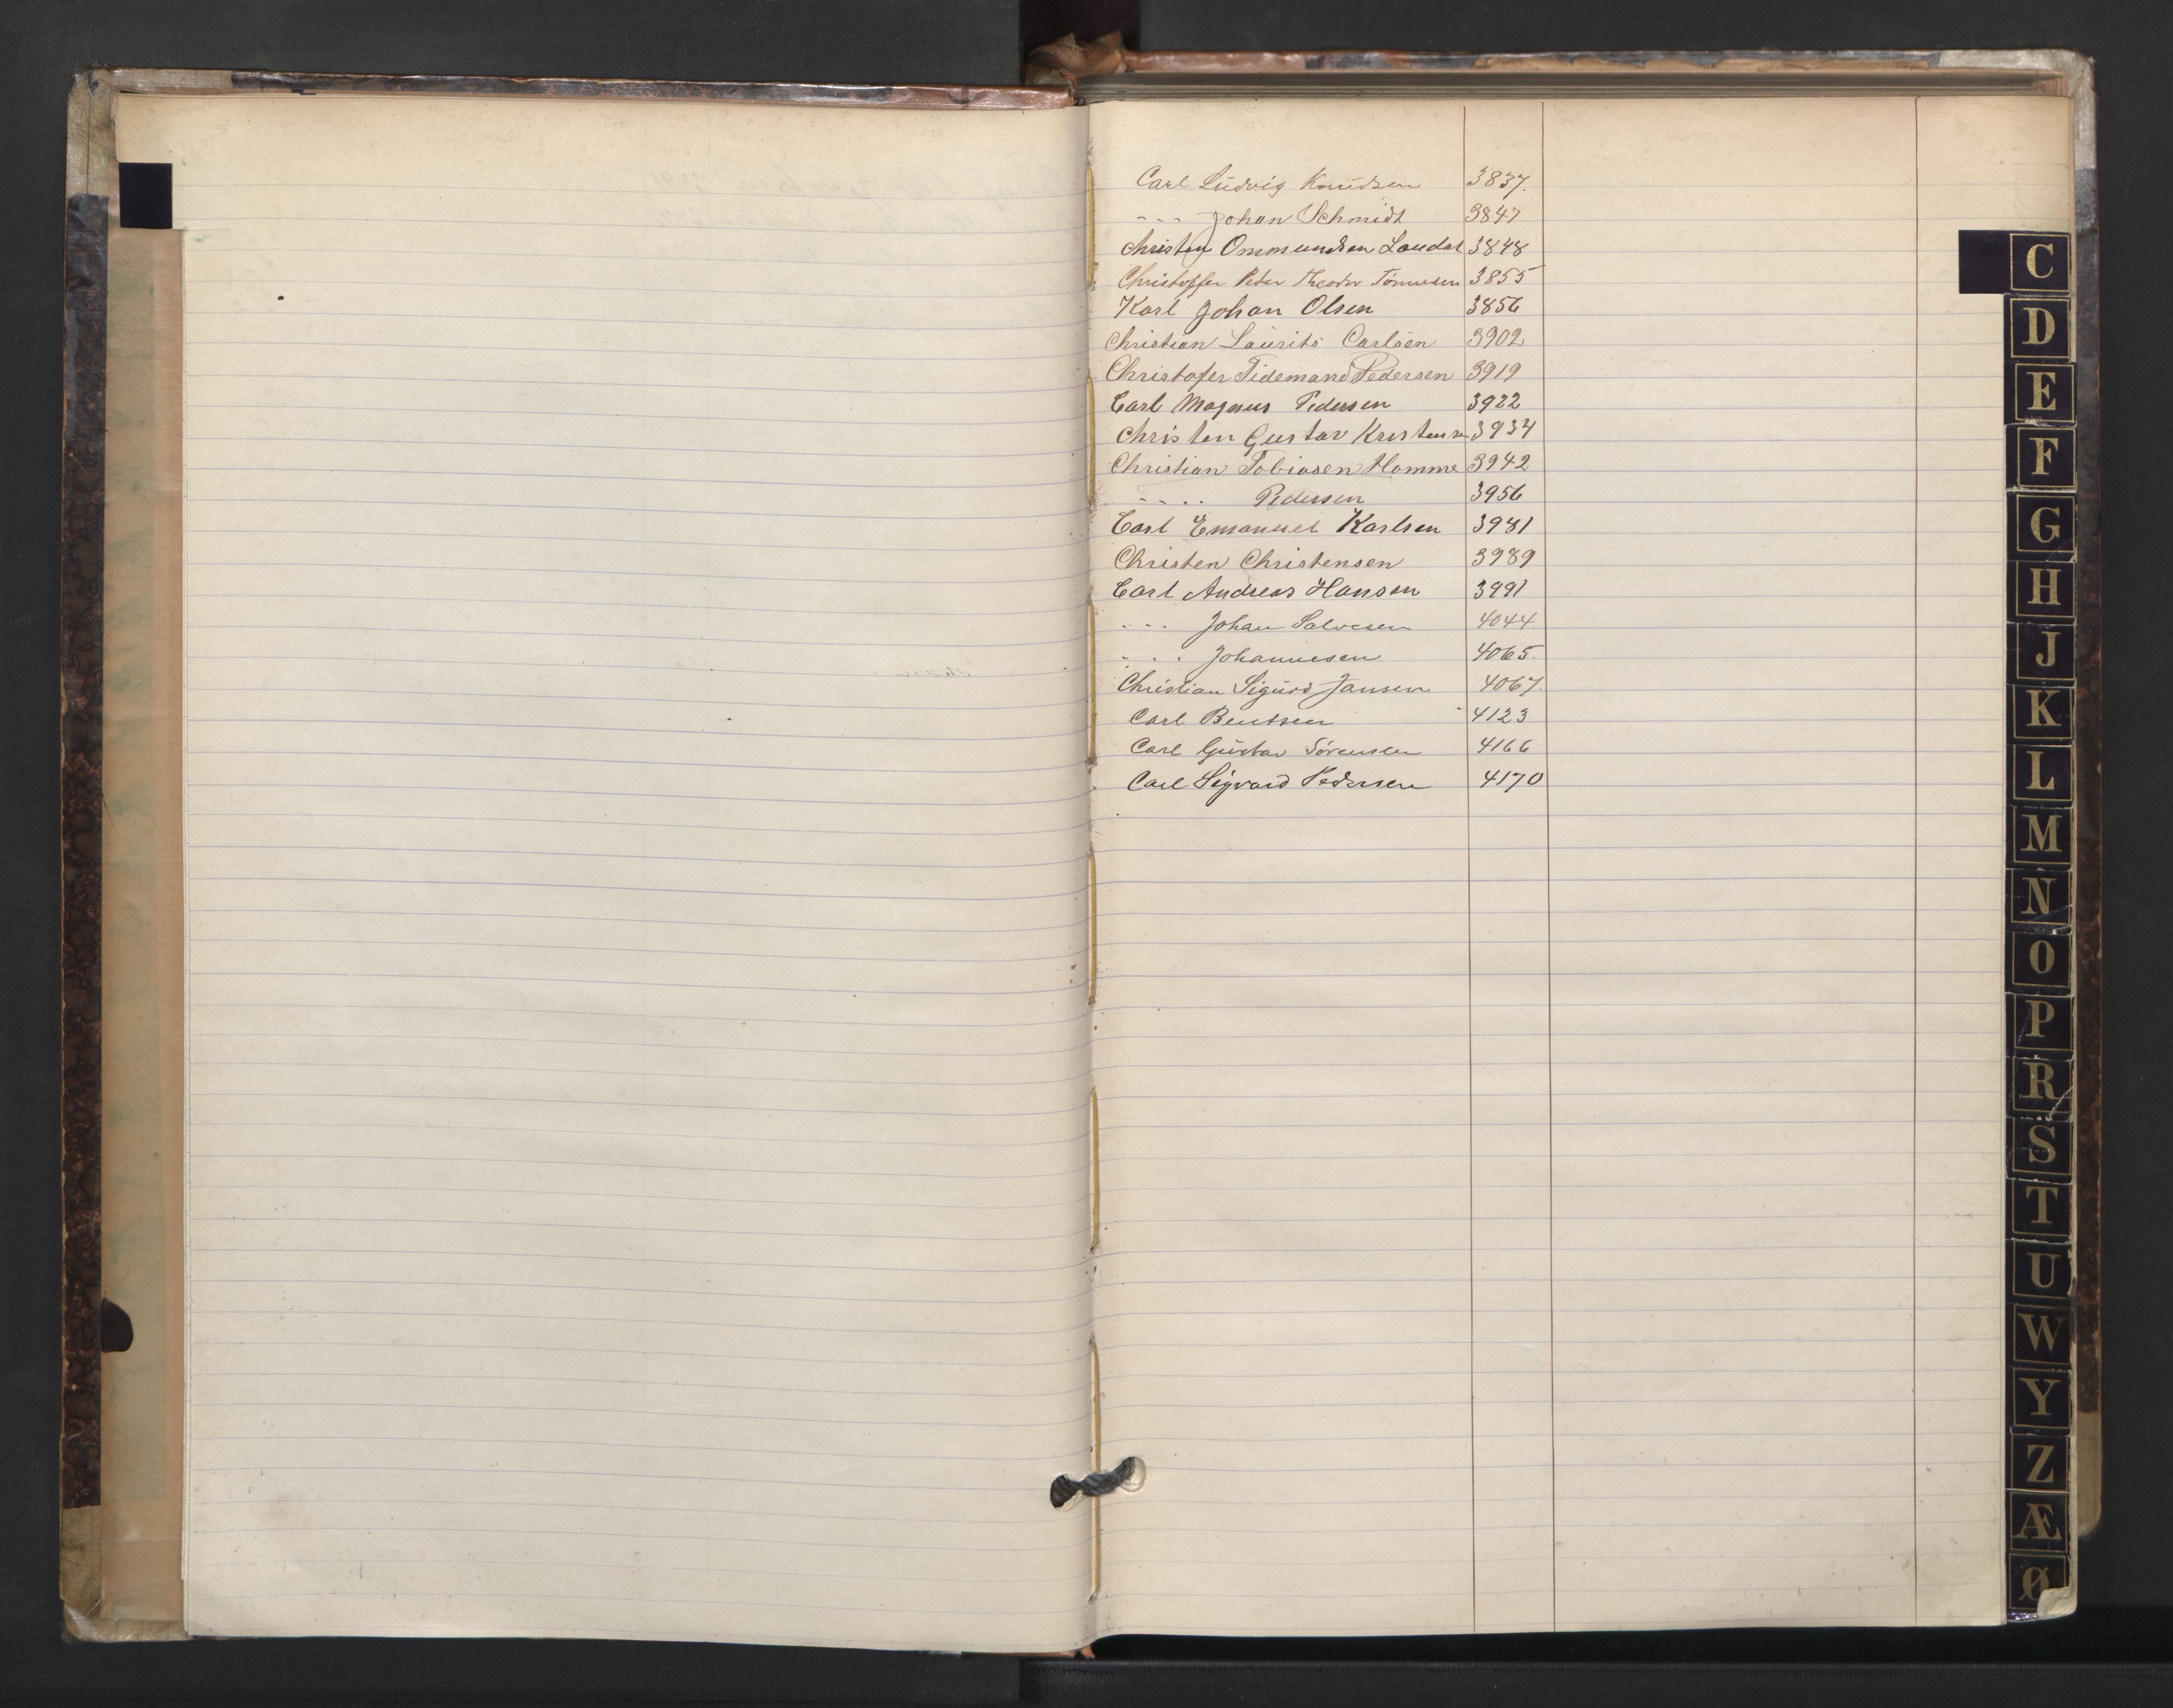 Carl Ludvig Knudsen 3837.
- - - Johan Schmidt 3847
Christen Ommundsen Laudal 3848
Christoffer Peder Theodor Tönnesen 3855
Karl Johan Olsen 3856
Christian Laurits Carlsen 3902
Christofer Tidemand Pedersen 3919
Carl Magnus Pedersen 3922
Christen Gustav Kristensen 3934
Christian Tobiasen Homme 3942
- - - - Pedersen 3956
Carl Emanuel Karlsen 3981
Christen Christensen 3989
Carl Andreas Hansen 3991
- - - Johan Salvesen 4044
- - - Johannesen 4065
Christian Sigurd Jansen 4067
Carl Bentsen 4123
Carl Gustav Sörensen 4166
Carl Sigvard Pedersen 4170
C
D
E
F
G
H
J
K
L
M
N
O
P
R
S
T
U
W
Y
Z
Æ
Ø